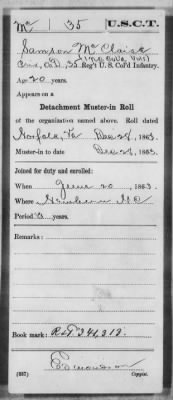 Mc | 35 | U.S.C.T.
Samson Mc Claise
(1 N.C. Col'd Vols)
Co. B, 35 Reg't U. S. Col'd Infantry.
Age 20 years.
Appears on a
Detachment Muster-in Roll
of the organization named above. Roll dated
Norfolk, Va Dec 28, 1863.
Muster-in to date Dec 28, 1863.
Joined for duty and enrolled:
When June 20, 1863.
Where Newbern NC
Period 3 years.
Remarks:
Book mark: R&P 341,313.
(337) Copyist.